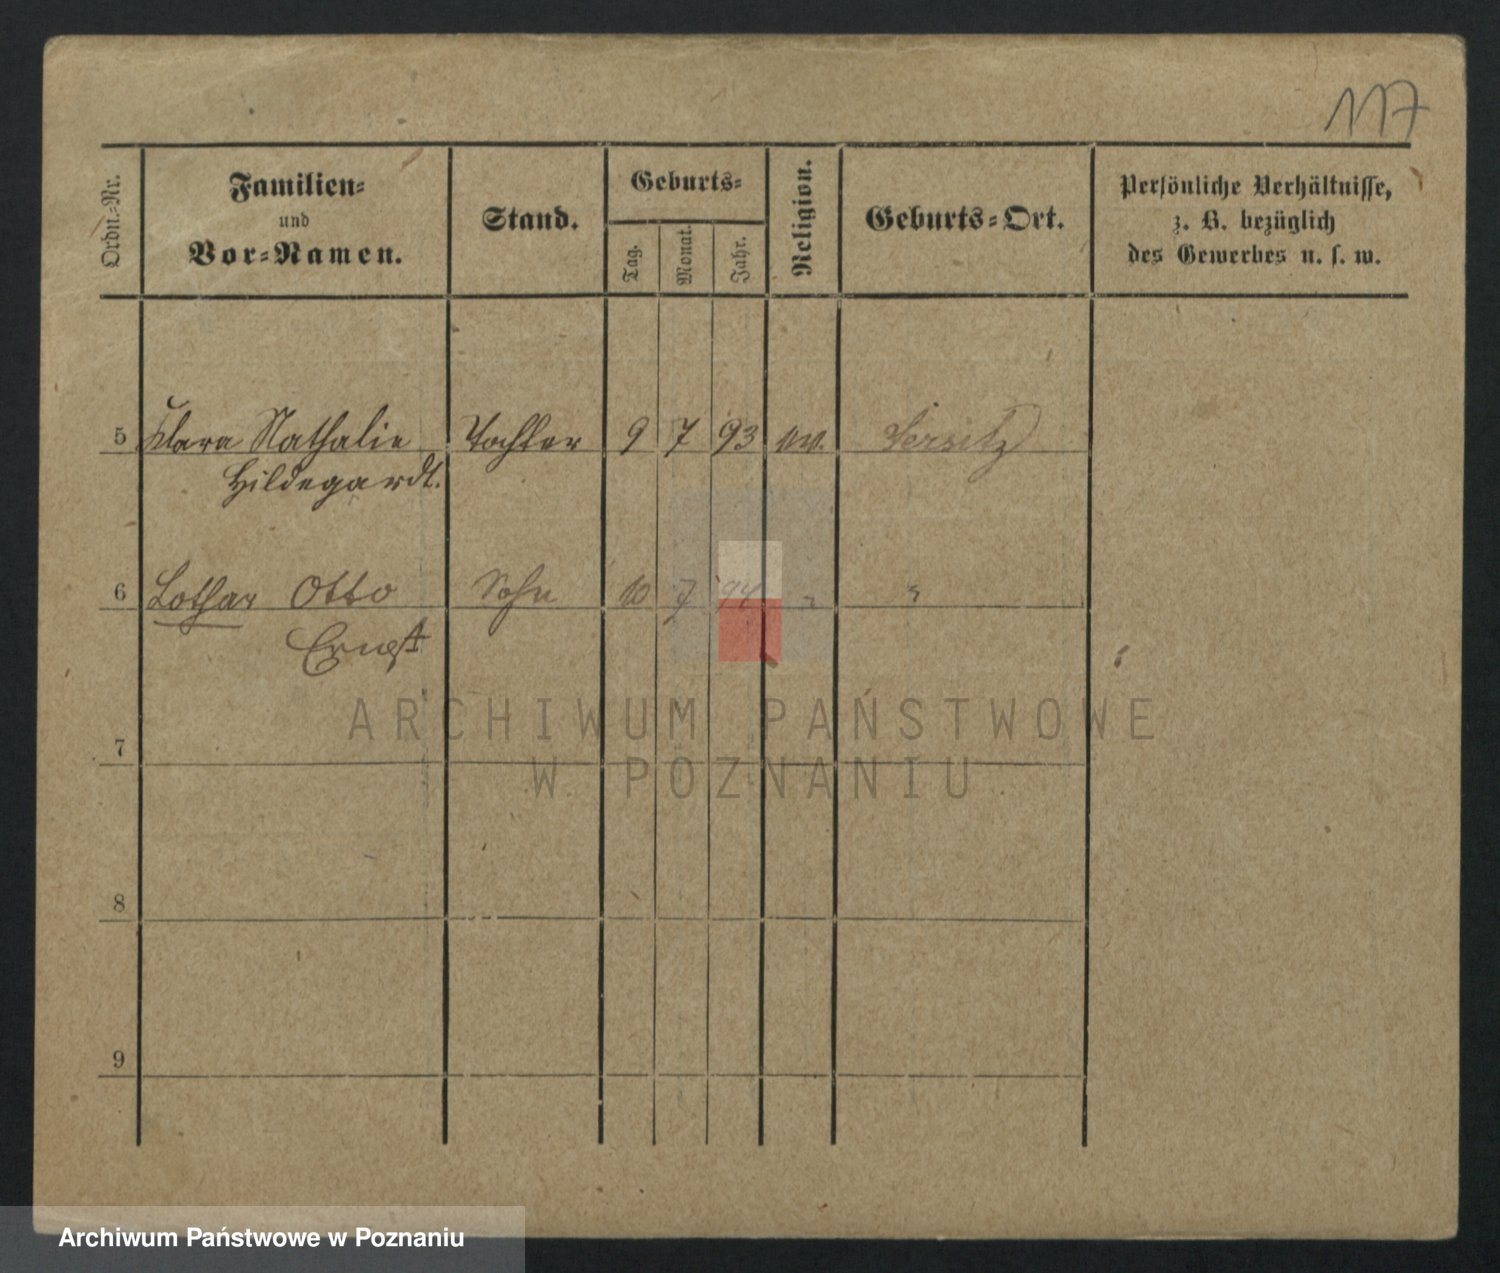 117
Ordn.-Nr.
Familien-
und
Vor-Namen.
Stand.
Geburts-
Tag.
Monat.
Jahr.
Religion.
Geburts-Ort.
Persönliche Verhältnisse,
z. B. bezüglich
des Gewerbes u. s. w.
5 Klara Nathalie Tochter 9 7 93 ev. Jersitz
Hildegardt.
6 Lothar Otto Sohn 10 7 94 " "
Ernst
ARCHIWUM PAŃSTWOWE
W POZNANIU
7
8
9
Archiwum Państwowe w Poznaniu